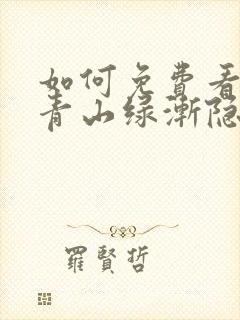 如何免費看
青山绿漸隐
羅賢哲